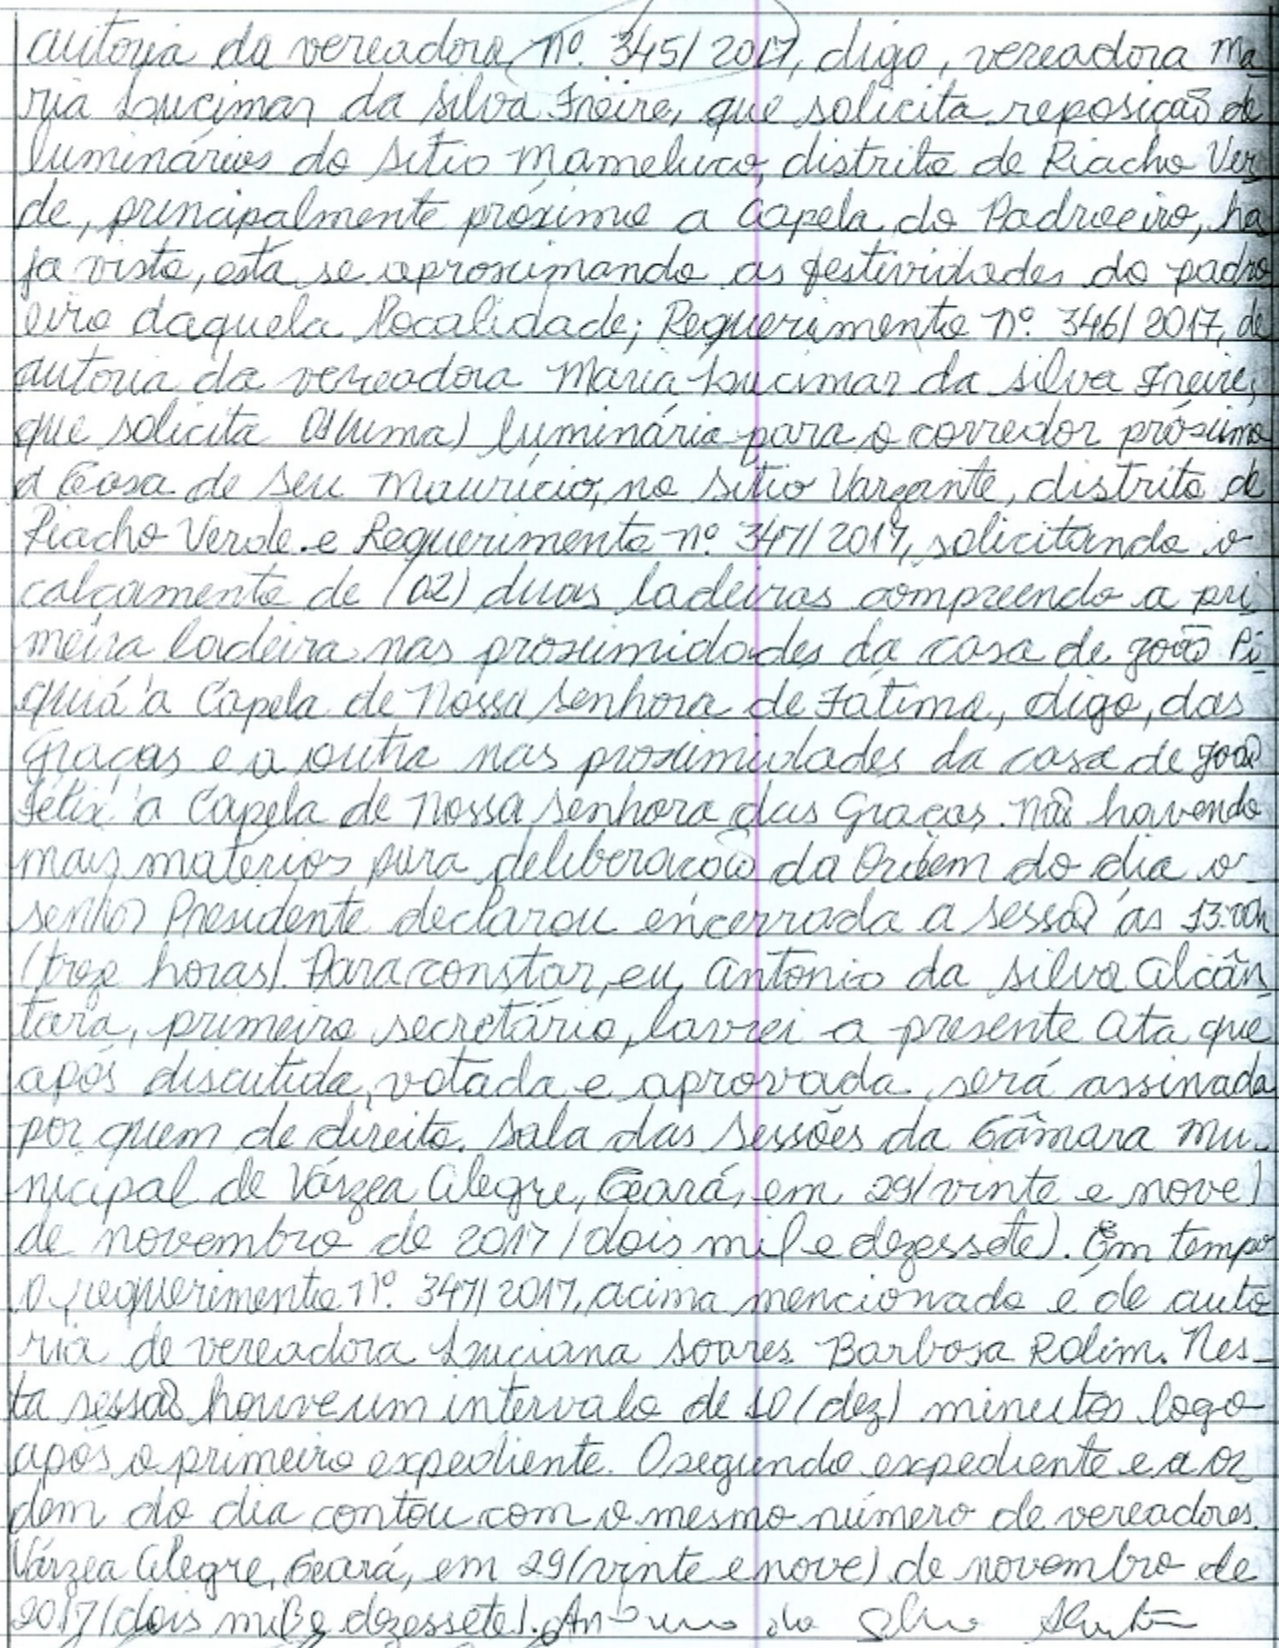 autoria da vereadora, nº. 345/2017, digo, vereadora Ma
ria Lucimar da Silva Freire, que solicita reposição de
luminárias do Sítio Mameluco, distrito de Riacho Ver
de, principalmente próximo a Capela do Padroeiro, ha
ja visto, esta se aproximando as festividades do padro
eiro daquela localidade; Requerimento nº. 346/2017, de
autoria da vereadora Maria Lucimar da Silva Freire,
que solicita 01(uma) luminária para o corredor próximo
a Casa de Seu Maurício, no Sítio Vargante, distrito de
Riacho Verde e Requerimento nº. 347/2017, solicitando o
calçamento de (02) duas ladeiras compreendo a pri
meira ladeira nas proximidades da casa de João Pi
quiá à Capela de Nossa Senhora de Fátima, digo, das
Graças e a outra nas proximidades da casa de João
Félix à Capela de Nossa Senhora das Graças. Não havendo
mais matérias para deliberação da Ordem do dia o
senhor Presidente declarou encerrada a sessão às 13:00h
(treze horas). Para constar, eu, Antonio da Silva Alcân
tara, primeiro secretário, lavrei a presente Ata que
após discutida, votada e aprovada será assinada
por quem de direito. Sala das Sessões da Câmara Mu-
nicipal de Várzea Alegre, Ceará, em 29(vinte e nove)
de novembro de 2017 (dois mil e dezessete). Em tempo
o requerimento nº. 347/2017, acima mencionado é de auto
ria de vereadora Luciana Soares Barbosa Rolim. Nes-
ta sessão houve um intervalo de 10(dez) minutos logo
após o primeiro expediente. O segundo expediente e a or
dem do dia contou com o mesmo número de vereadores.
Várzea Alegre, Ceará, em 29(vinte e nove) de novembro de
2017(dois mil e dezessete). Antonio da Silva Alcântara